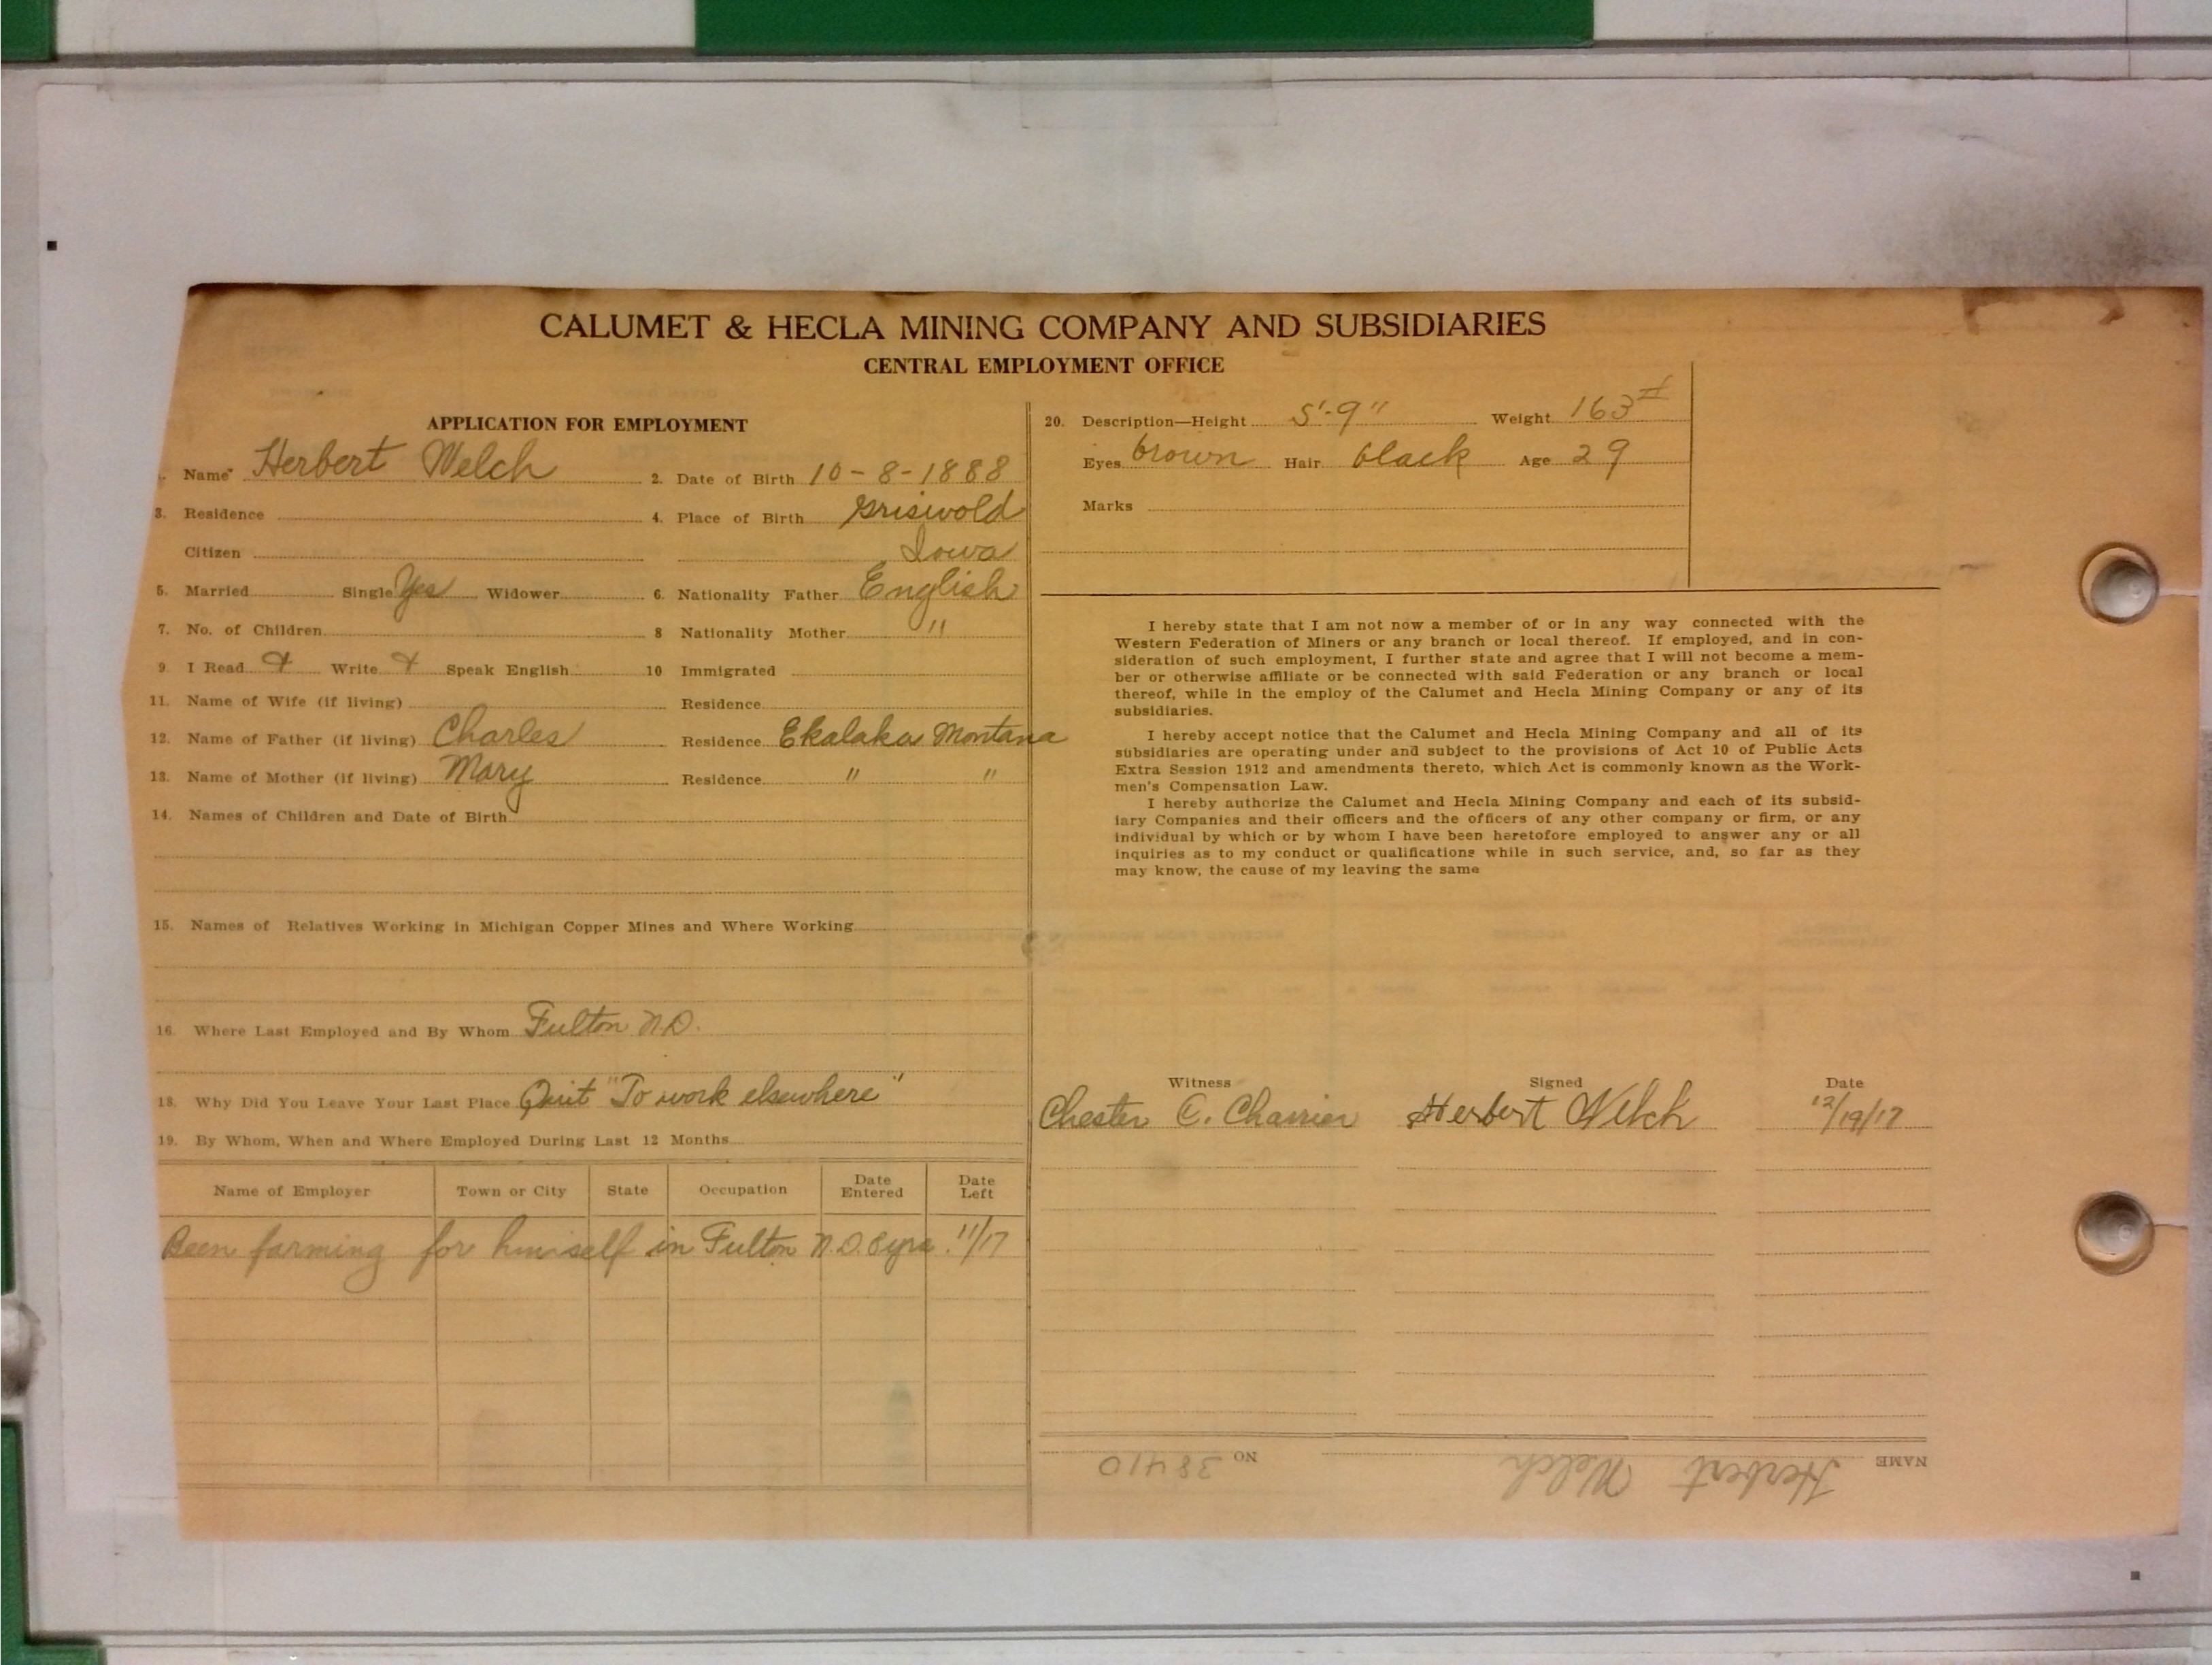 CALUMET & HECLA MINING COMPANY AND SUBSIDIARIES
CENTRAL EMPLOYMENT OFFICE
APPLICATION FOR EMPLOYMENT
Name Herbert Welch 2. Date of Birth 10-8-1888
3. Residence 4. Place of Birth Griswold
Citizen Iowa
5. Married Single Yes Widower 6. Nationality Father English
7. No. of Children 8 Nationality Mother "
9. I Read Write Speak English 10 Immigrated
11. Name of Wife (if living) Residence
12. Name of Father (if living) Charles Residence Ekalaka Montana
13. Name of Mother (if living) Mary Residence " "
14. Names of Children and Date of Birth
15. Names of Relatives Working in Michigan Copper Mines and Where Working
16. Where Last Employed and By Whom Fulton N.D.
18. Why Did You Leave Your Last Place Quit "To work elsewhere"
19. By Whom, When and Where Employed During Last 12 Months
Name of Employer Town or City State Occupation Date Entered Date Left
Been farming for himself in Fulton N.D. 8yrs. 11/17
20. Description—Height 5'-9" Weight 163#
Eyes brown Hair black Age 29
Marks
I hereby state that I am not now a member of or in any way connected with the
Western Federation of Miners or any branch or local thereof. If employed, and in con-
sideration of such employment, I further state and agree that I will not become a mem-
ber or otherwise affiliate or be connected with said Federation or any branch or local
thereof, while in the employ of the Calumet and Hecla Mining Company or any of its
subsidiaries.
I hereby accept notice that the Calumet and Hecla Mining Company and all of its
subsidiaries are operating under and subject to the provisions of Act 10 of Public Acts
Extra Session 1912 and amendments thereto, which Act is commonly known as the Work-
men's Compensation Law.
I hereby authorize the Calumet and Hecla Mining Company and each of its subsid-
iary Companies and their officers and the officers of any other company or firm, or any
individual by which or by whom I have been heretofore employed to answer any or all
inquiries as to my conduct or qualifications while in such service, and, so far as they
may know, the cause of my leaving the same
Witness Signed Date
Chester C. Charrier Herbert Welch 12/19/17
NAME Herbert Welch NO 38410